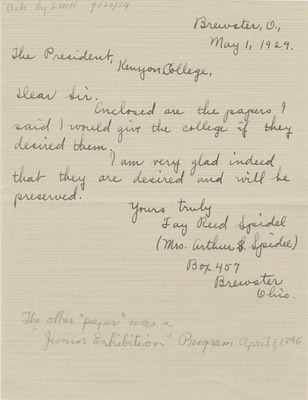 Ack by SMH 9/20/29
Brewster, O.,
May 1, 1929.
The President,
Kenyon College,
Dear Sir.
Enclosed are the papers I
said I would give the college if they
desired them.
I am very glad indeed
that they are desired and will be
preserved.
Yours truly
Fay Reed Spidel
(Mrs. Arthur S. Spidel)
Box 457
Brewster
Ohio.
The other "paper" was a
"Junior Exhibition" Program April 1, 1896